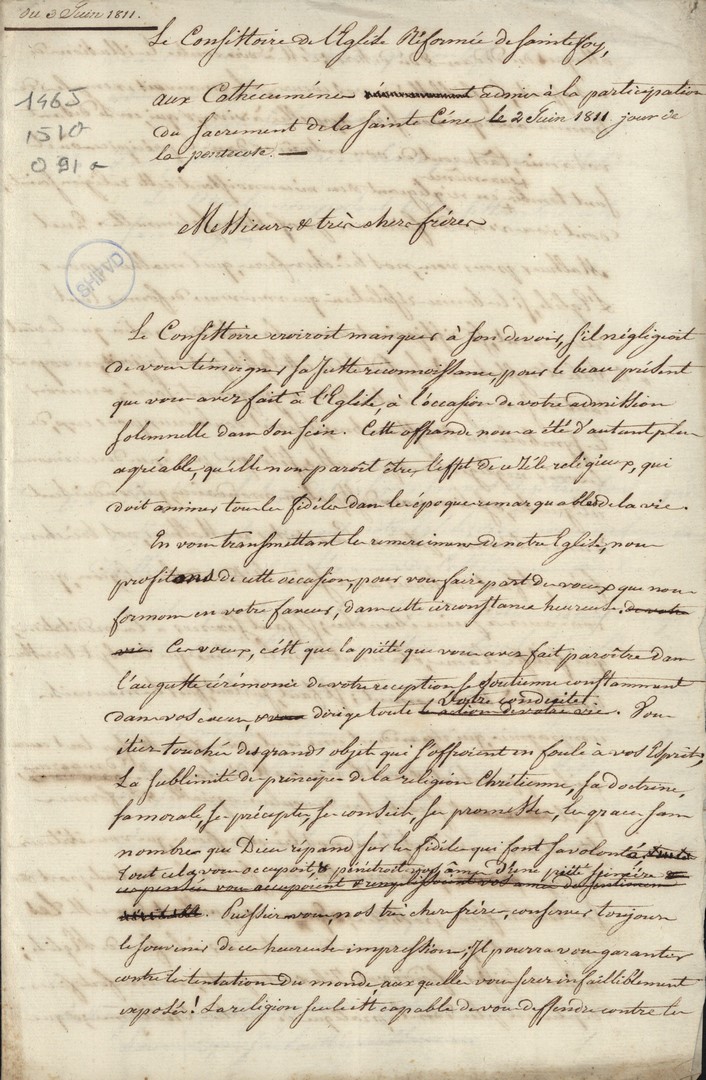 du 3 Juin 1811.
Le Consistoire de l'Eglise Réformée de Sainte foy,
aux Cathécumènes admis à la participation
du Sacrement de la Sainte Cène le 2 Juin 1811 jour de
la pentecote. —
1465
1510
091a
Messieurs & très chers frères
CAHHS
Le Consistoire croiroit manquer à son devoir, s'il négligeoit
de vous témoigner sa juste reconnoissance, pour le beau présent
que vous avez fait à l'Eglise, à l'occasion de votre admission
solemnelle dans son sein. Cette offrande nous a été d'autant plus
agréable, qu'elle nous paroît être l'effet de ce Zèle religieux, qui
doit animer tous les fidèles dans les époques remarquables de la vie.
En vous transmettant les remercimens de notre Eglise, nous
profitons de cette occasion, pour vous faire part des voeux que nous
formons en votre faveur, dans cette circonstance heureuse. de votre
vie. Ces voeux, c'est que la piété que vous avez fait paroître dans
l'auguste cérémonie de votre réception se soutienne constamment
dans vos coeurs, & dirige toute votre conduite. les actions de votre vie. Vous
étiez touchés des grands objets qui s'offroient en foule à vos Esprits,
La sublimité des principes de la religion Chrétienne, sa doctrine,
sa morale, ses préceptes, ses conseils, ses promesses, les graces sans
nombre que Dieu répand sur les fidèles qui font sa volonté,
tout cela vous occupoit, & pénétroit vos âmes d'une piété sincère &
ces pensées vous occupoient & remplissoient vos ames de sentimens
Puissiez-vous, nos très chers frères, conserver toujours
le souvenir de ces heureuses impressions; il pourra vous garantir
contre les tentations du monde, auxquelles vous serez infailliblement
exposés! La religion seule est capable de vous deffendre contre les